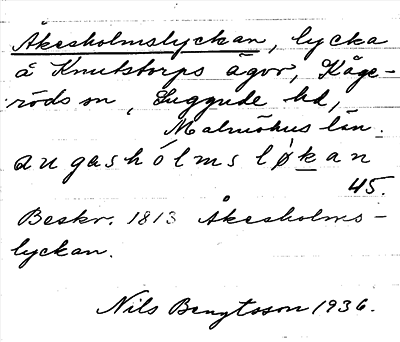 Åkesholmslyckan, lycka
å Knutstorps ägor, Kåge-
röds sn, Luggude hd,
Malmöhus län.
augashólmsløkan
45.
Beskr. 1813 Åkesholms-
lyckan.
Nils Bengtsson 1936.